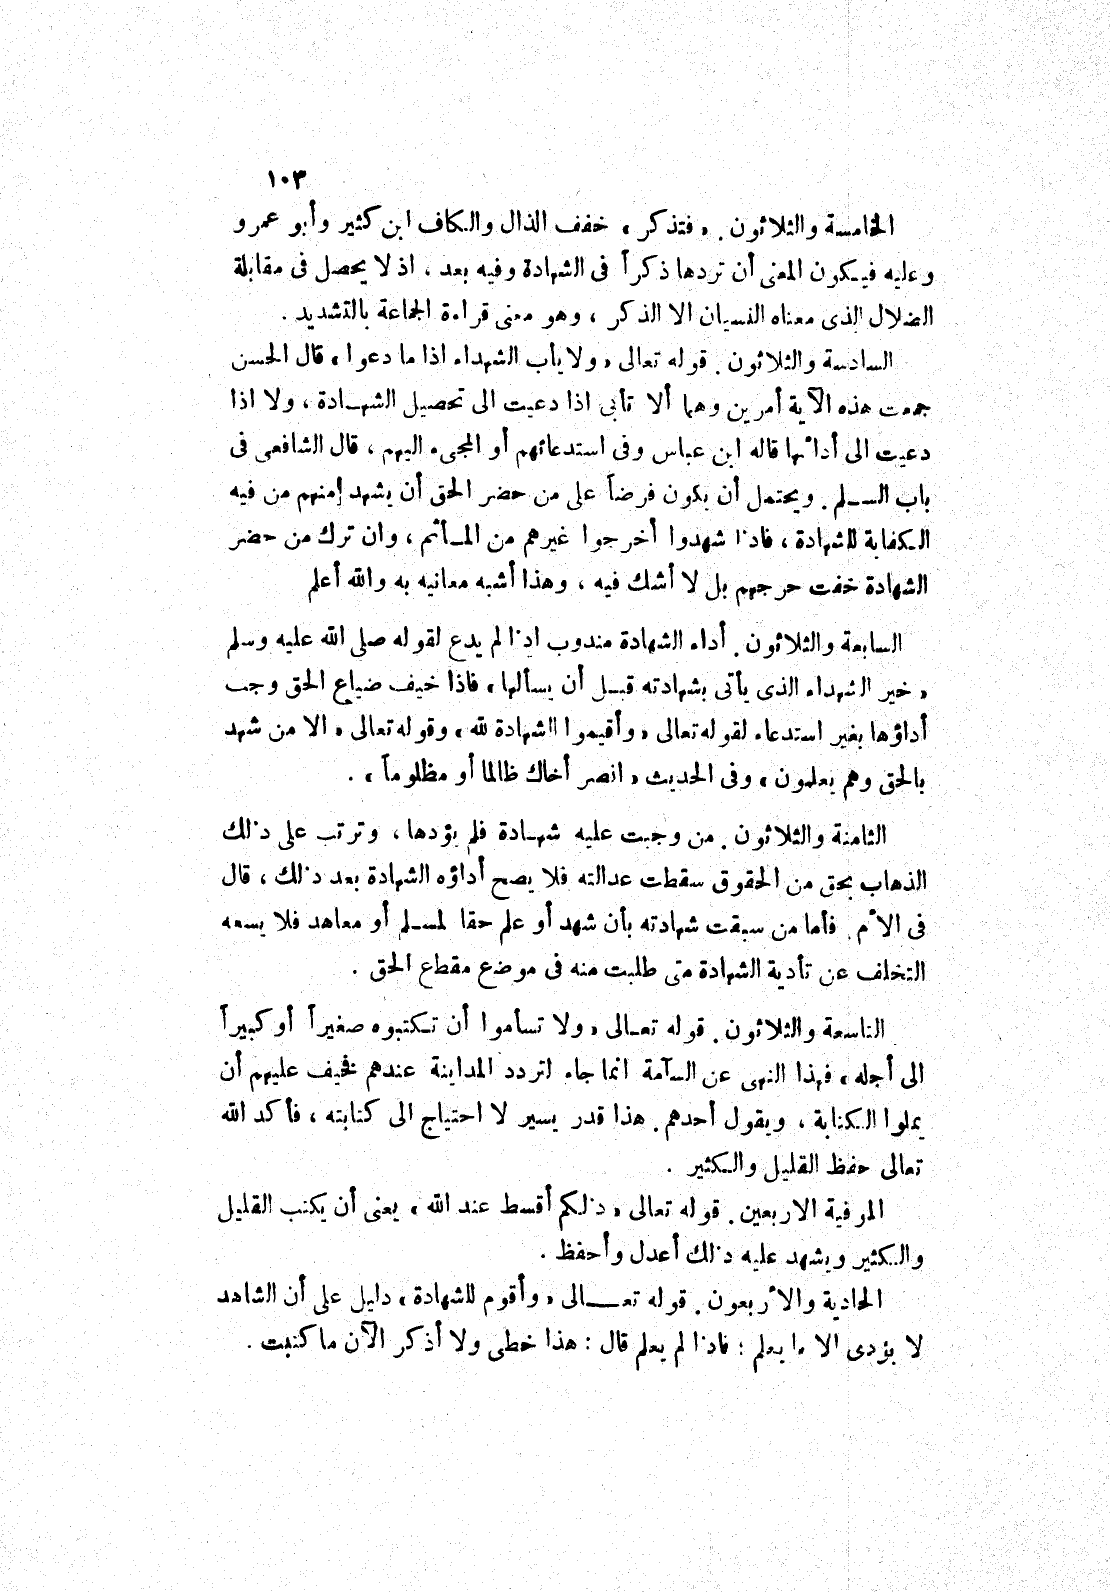 ١٠٣
الخامسة والثلاثون. «فتذكر» خفف الذال والكاف ابن كثير وأبو عمرو
وعليه فيكون المعنى أن تردها ذكراً فى الشهادة وفيه بعد، اذ لا يحصل فى مقابلة
الضلال الذى معناه النسيان الا الذكر، وهو معنى قراءة الجماعة بالتشديد.
السادسة والثلاثون. قوله تعالى «ولا يأب الشهداء اذا ما دعوا» قال الحسن
جمعت هذه الآية أمرين وهما ألا تأبى اذا دعيت الى تحصيل الشهادة، ولا اذا
دعيت الى أدائها قاله ابن عباس وفى استدعائهم أو المجىء اليهم، قال الشافعى فى
باب السلم. ويحتمل أن يكون فرضاً على من حضر الحق أن يشهد منهم من فيه
الكفاية للشهادة، فاذا شهدوا أخرجوا غيرهم من المأثم، وان ترك من حضر
الشهادة خفت حرجهم بل لا أشك فيه، وهذا أشبه معانيه به والله أعلم
السابعة والثلاثون. أداء الشهادة مندوب اذا لم يدع لقوله صلى الله عليه وسلم
«خير الشهداء الذى يأتى بشهادته قبل أن يسألها» فاذا خيف ضياع الحق وجب
أداؤها بغير استدعاء لقوله تعالى «وأقيموا الشهادة لله» وقوله تعالى «الا من شهد
بالحق وهم يعلمون» وفى الحديث «انصر أخاك ظالما أو مظلوماً».
الثامنة والثلاثون. من وجبت عليه شهادة فلم يؤدها، وترتب على ذلك
الذهاب بحق من الحقوق سقطت عدالته فلا يصح أداؤه الشهادة بعد ذلك، قال
فى الأم. فأما من سبقت شهادته بأن شهد أو علم حقا لمسلم أو معاهد فلا يسعه
التخلف عن تأدية الشهادة متى طلبت منه فى موضع مقطاع الحق.
التاسعة والثلاثون. قوله تعالى «ولا تسأموا أن تكتبوه صغيراً أو كبيراً
الى أجله» فهذا النهى عن السآمة انما جاء لتردد المداينة عندهم فخيف عليهم أن
يملوا الكتابة، ويقول أحدهم. هذا قدر يسير لا احتياج الى كتابته، فأكد الله
تعالى حفظ القليل والكثير.
الموفية الاربعين. قوله تعالى «ذلكم أقسط عند الله» يعنى أن يكتب القليل
والكثير ويشهد عليه ذلك أعدل وأحفظ.
الحادية والأربعون. قوله تعالى «وأقوم للشهادة» دليل على أن الشاهد
لا يؤدى الا ما يعلم؛ فاذا لم يعلم قال: هذا خطى ولا أذكر الآن ما كتبت.